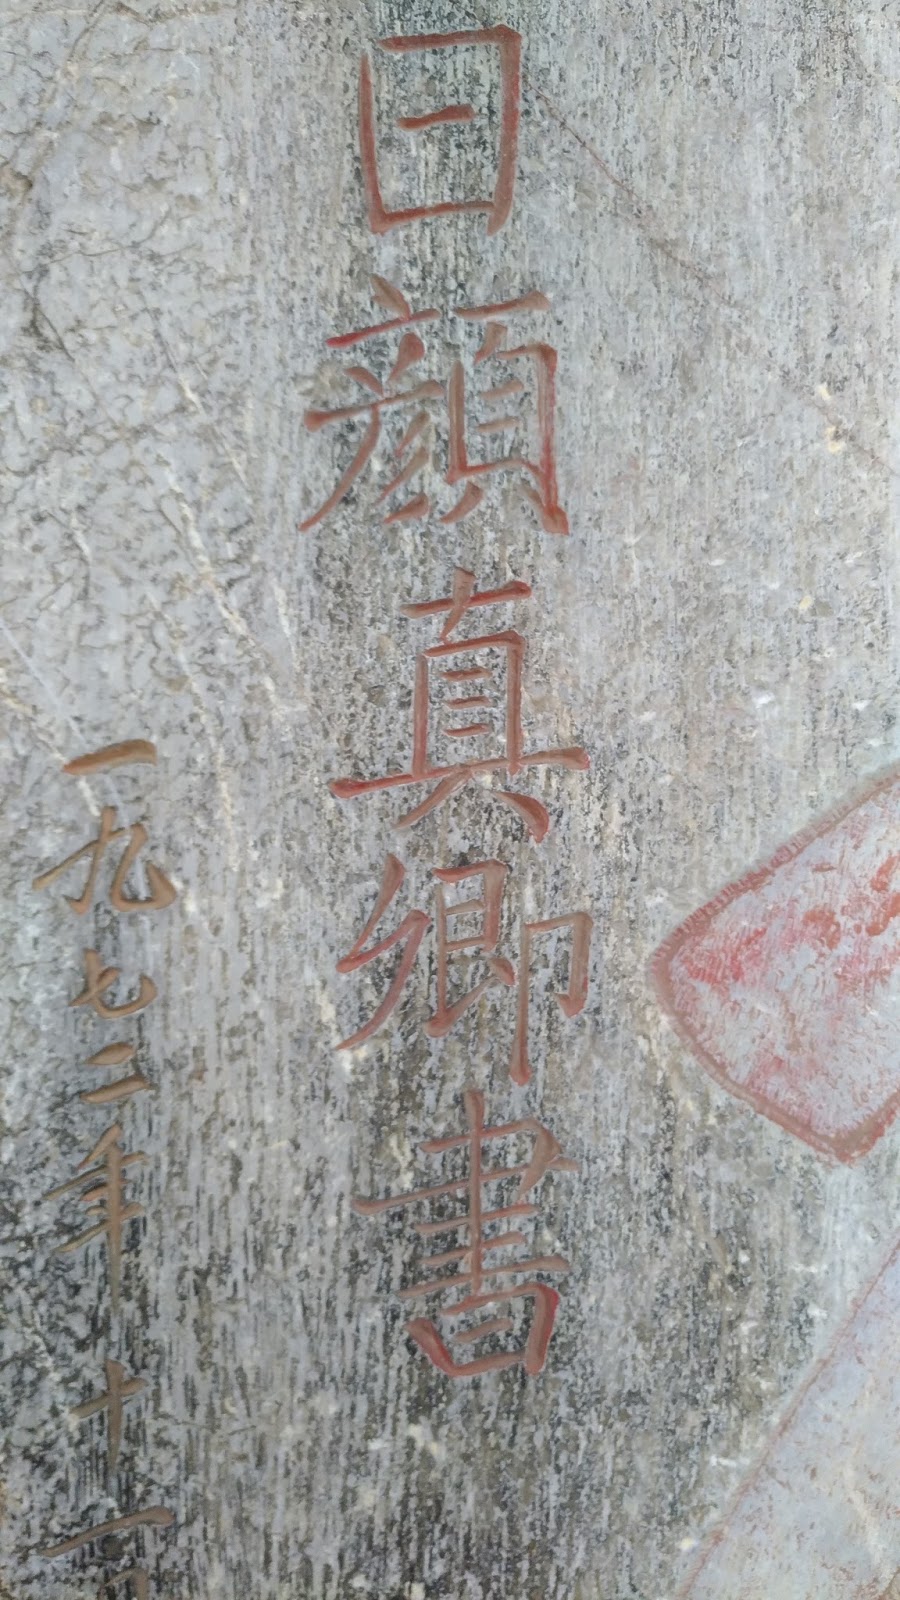 日顏真卿書
一九七二年十一